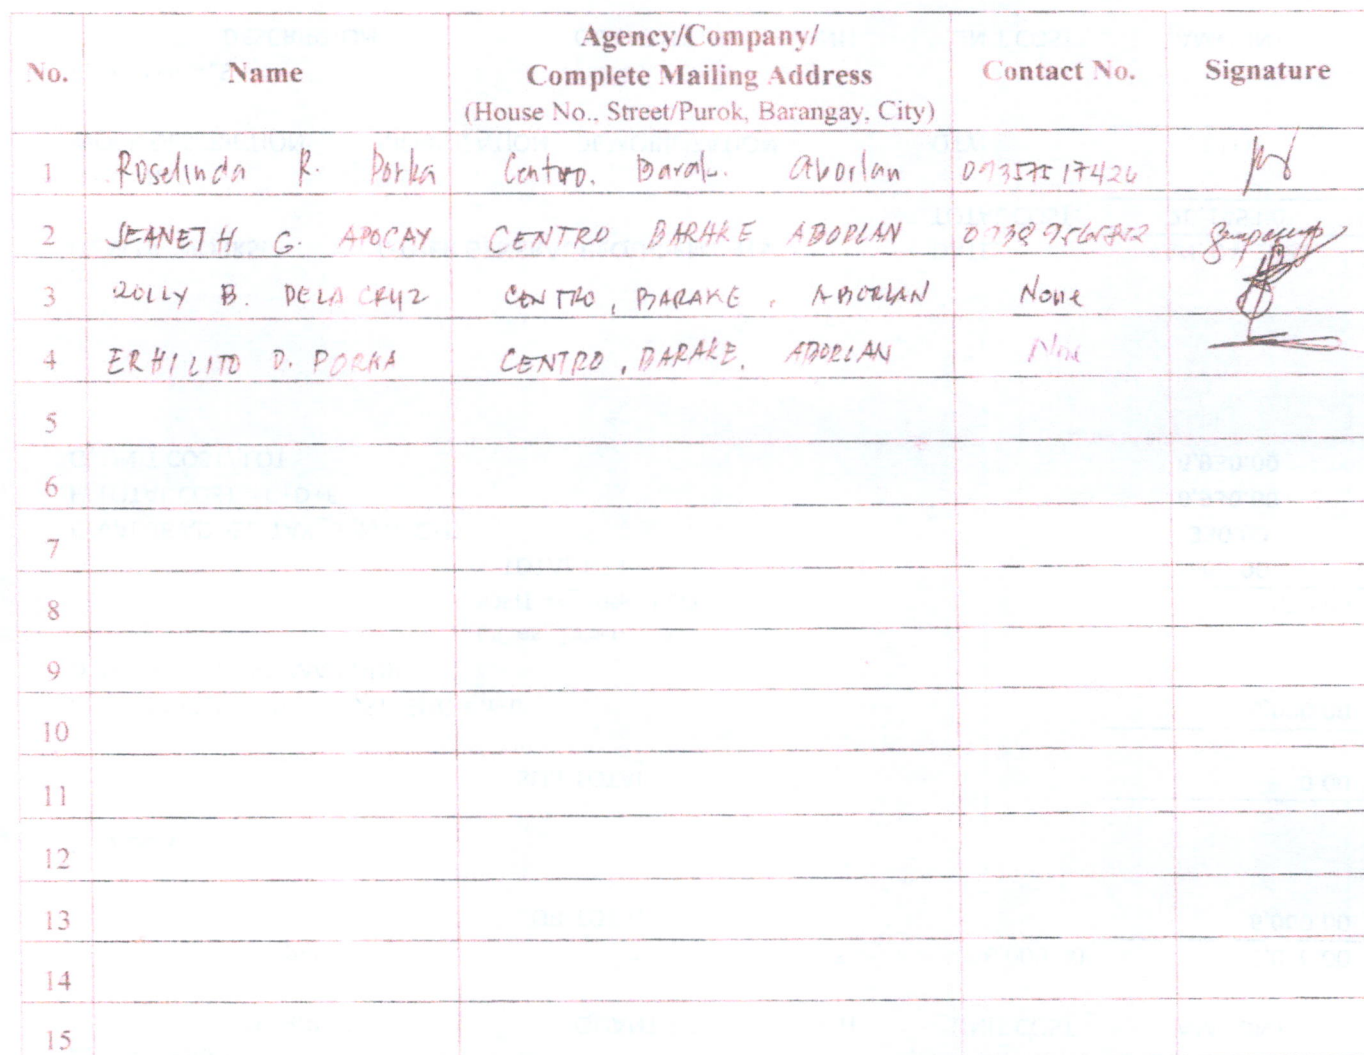 No. Name Agency/Company/ Complete Mailing Address (House No., Street/Purok, Barangay, City) Contact No. Signature
1 Roselinda R. Porka Centro. Barak. Aborlan 09357517426
2 JEANETH G. APOCAY CENTRO BARAKE ABORLAN
3 ROLLY B. DELA CRUZ CENTRO, BARAKE, ABORLAN None
4 ERHILITO D. PORKA CENTRO, BARAKE, ABORLAN
5
6
7
8
9
10
11
12
13
14
15